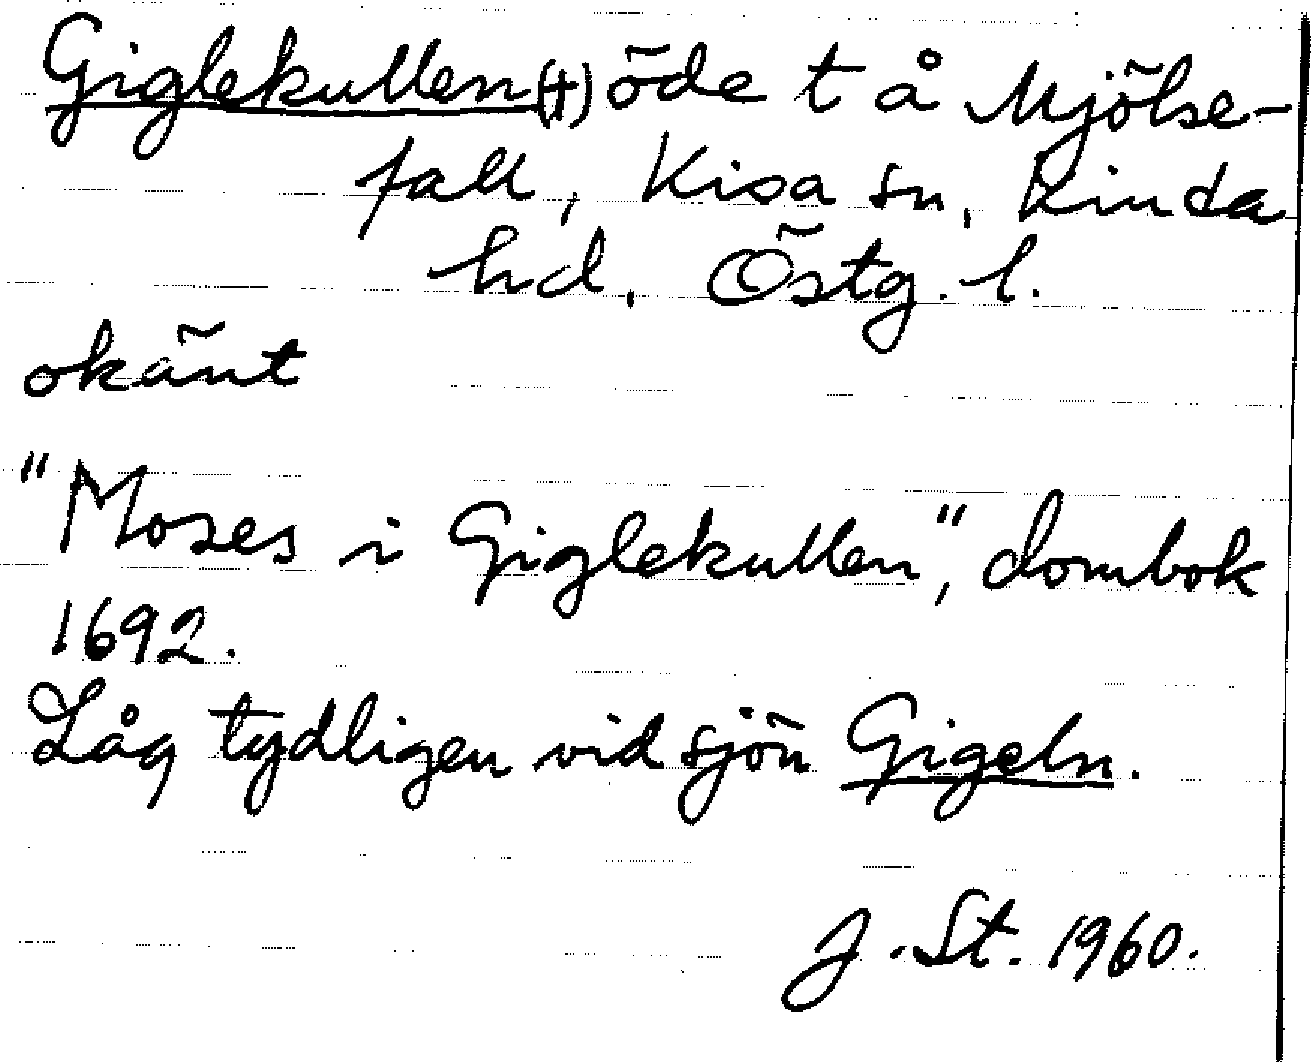 Giglekullen (+) öde t å Mjölse-
fall, Kisa sn, Kinda
hd, Östg. l.
okänt
"Moses i Giglekullen", dombok
1692.
Låg tydligen vid sjön Gigeln.
J. St. 1960.